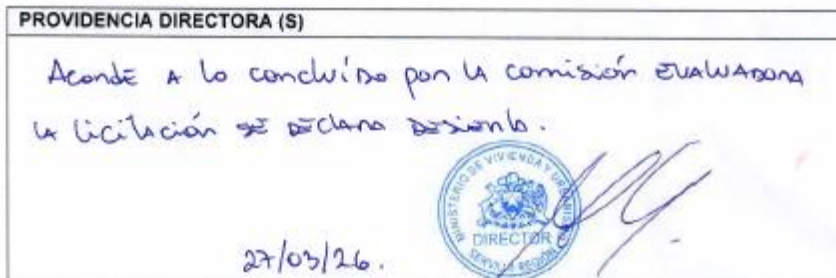 PROVIDENCIA DIRECTORA (S)
Acorde a lo concluído por la comisión evaluadora
la licitación se declara desierta.
MINISTERIO DE VIVIENDA Y URBANISMO
DIRECTOR
SERVIU REGIÓN
27/03/26.